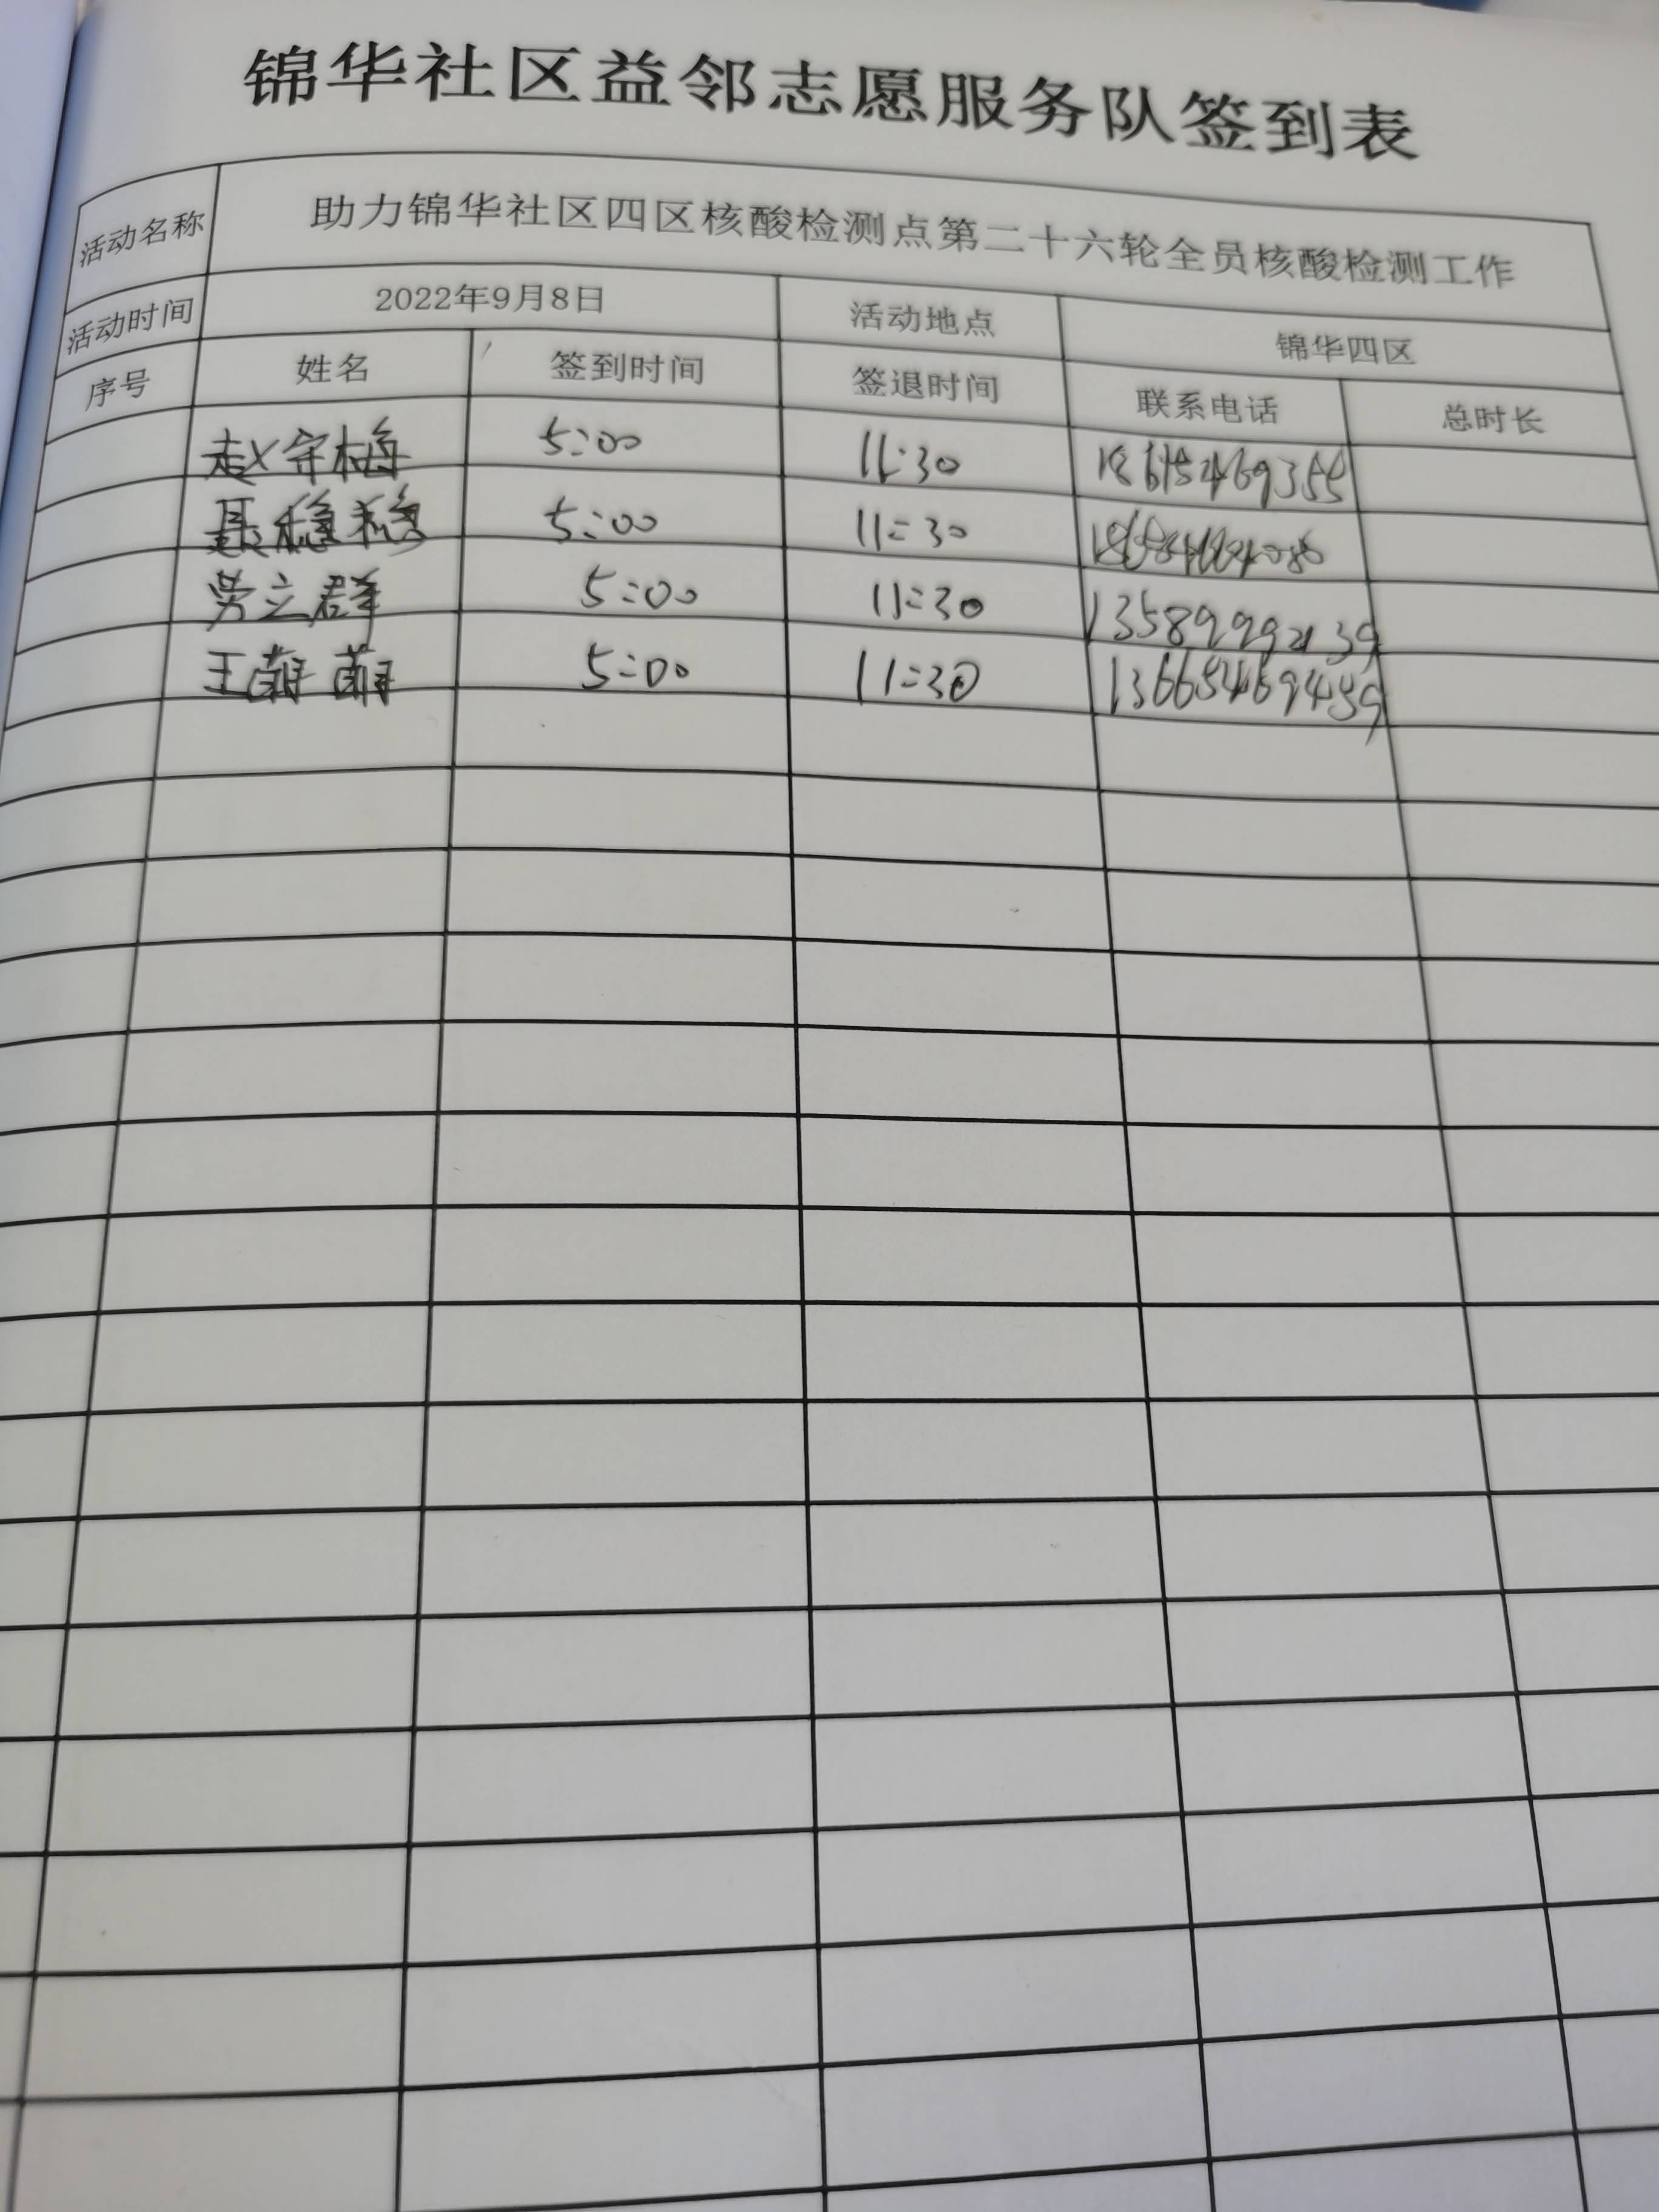 锦华社区益邻志愿服务队签到表
活动名称 助力锦华社区四区核酸检测点第二十六轮全员核酸检测工作
活动时间 2022年9月8日 活动地点 锦华四区
序号 姓名 签到时间 签退时间 联系电话 总时长
赵守梅 5:00 11:30 18615469355
聂稳稳 5:00 11:30
劳立群 5:00 11:30 13589992139
王萌萌 5:00 11:30 13665469459